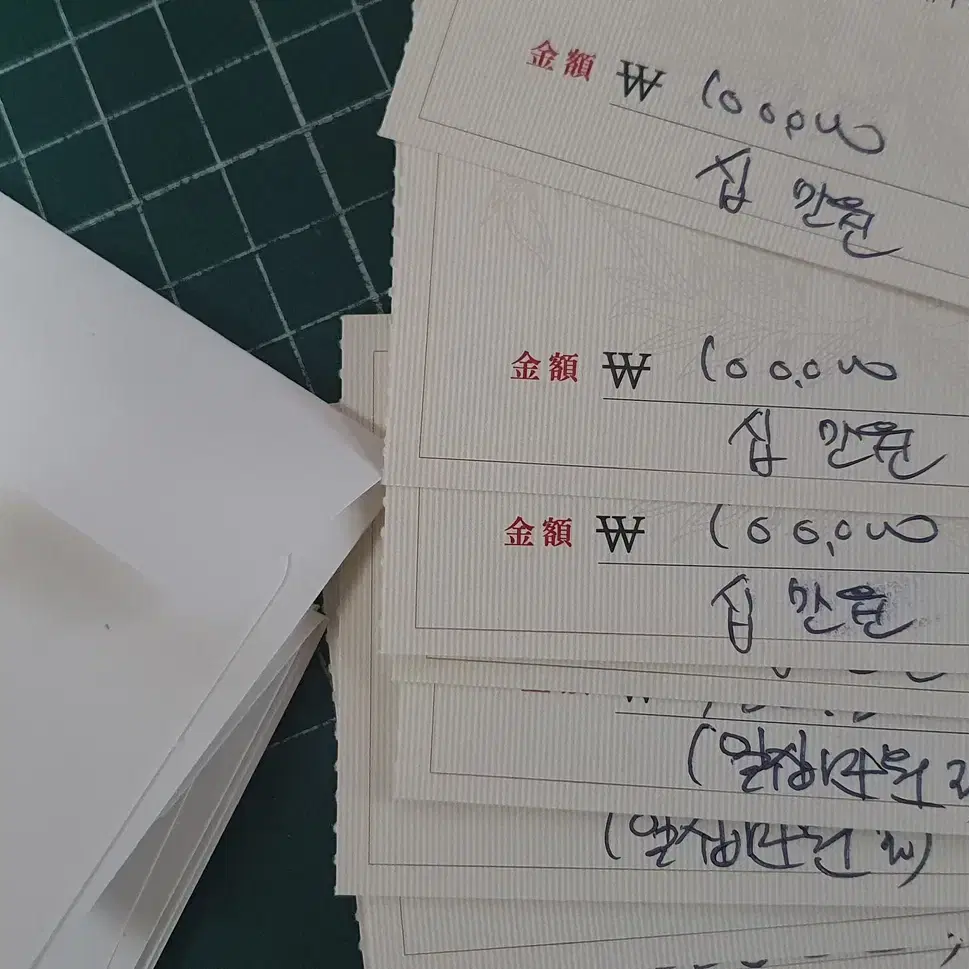 金額 ₩ 100,000
십 만원
金額 ₩ 100,000
십 만원
金額 ₩ 100,000
십 만원
(일십만원
(일십만원